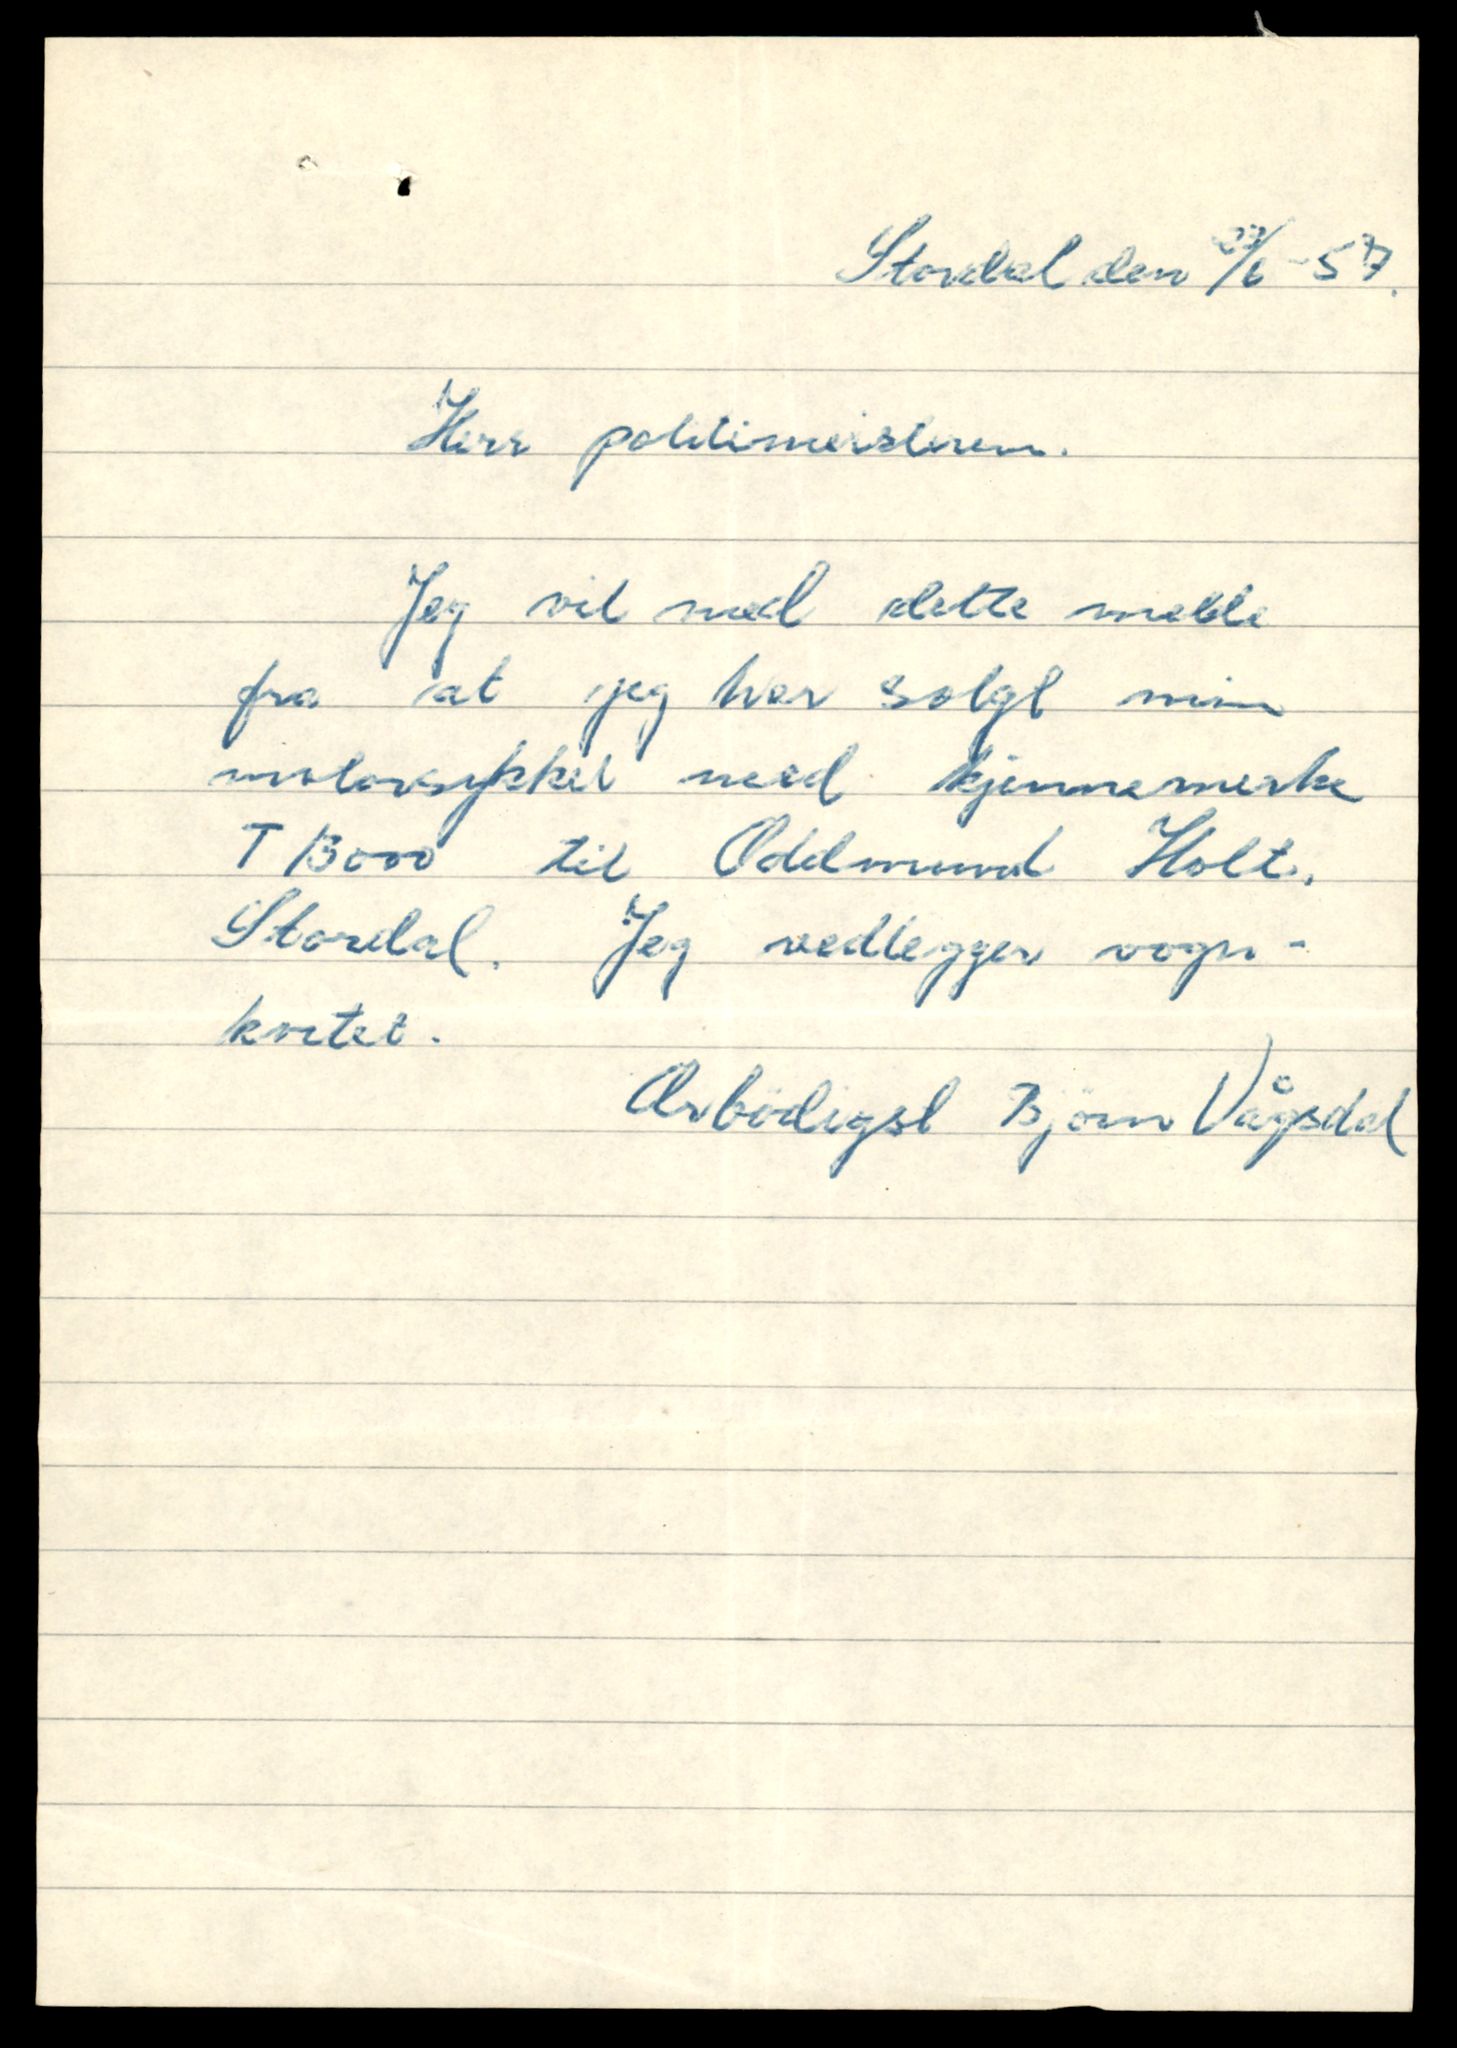 Stordal den 27/6-57.
Herr politimeisteren.
Jeg vil med dette melde
fra at jeg har solgt min
motorsykkel med kjennemerke
T 13000 til Oddmund Holt.
Stordal. Jeg vedlegger vogn-
kortet.
Ærbödigst Björn Vågsdal